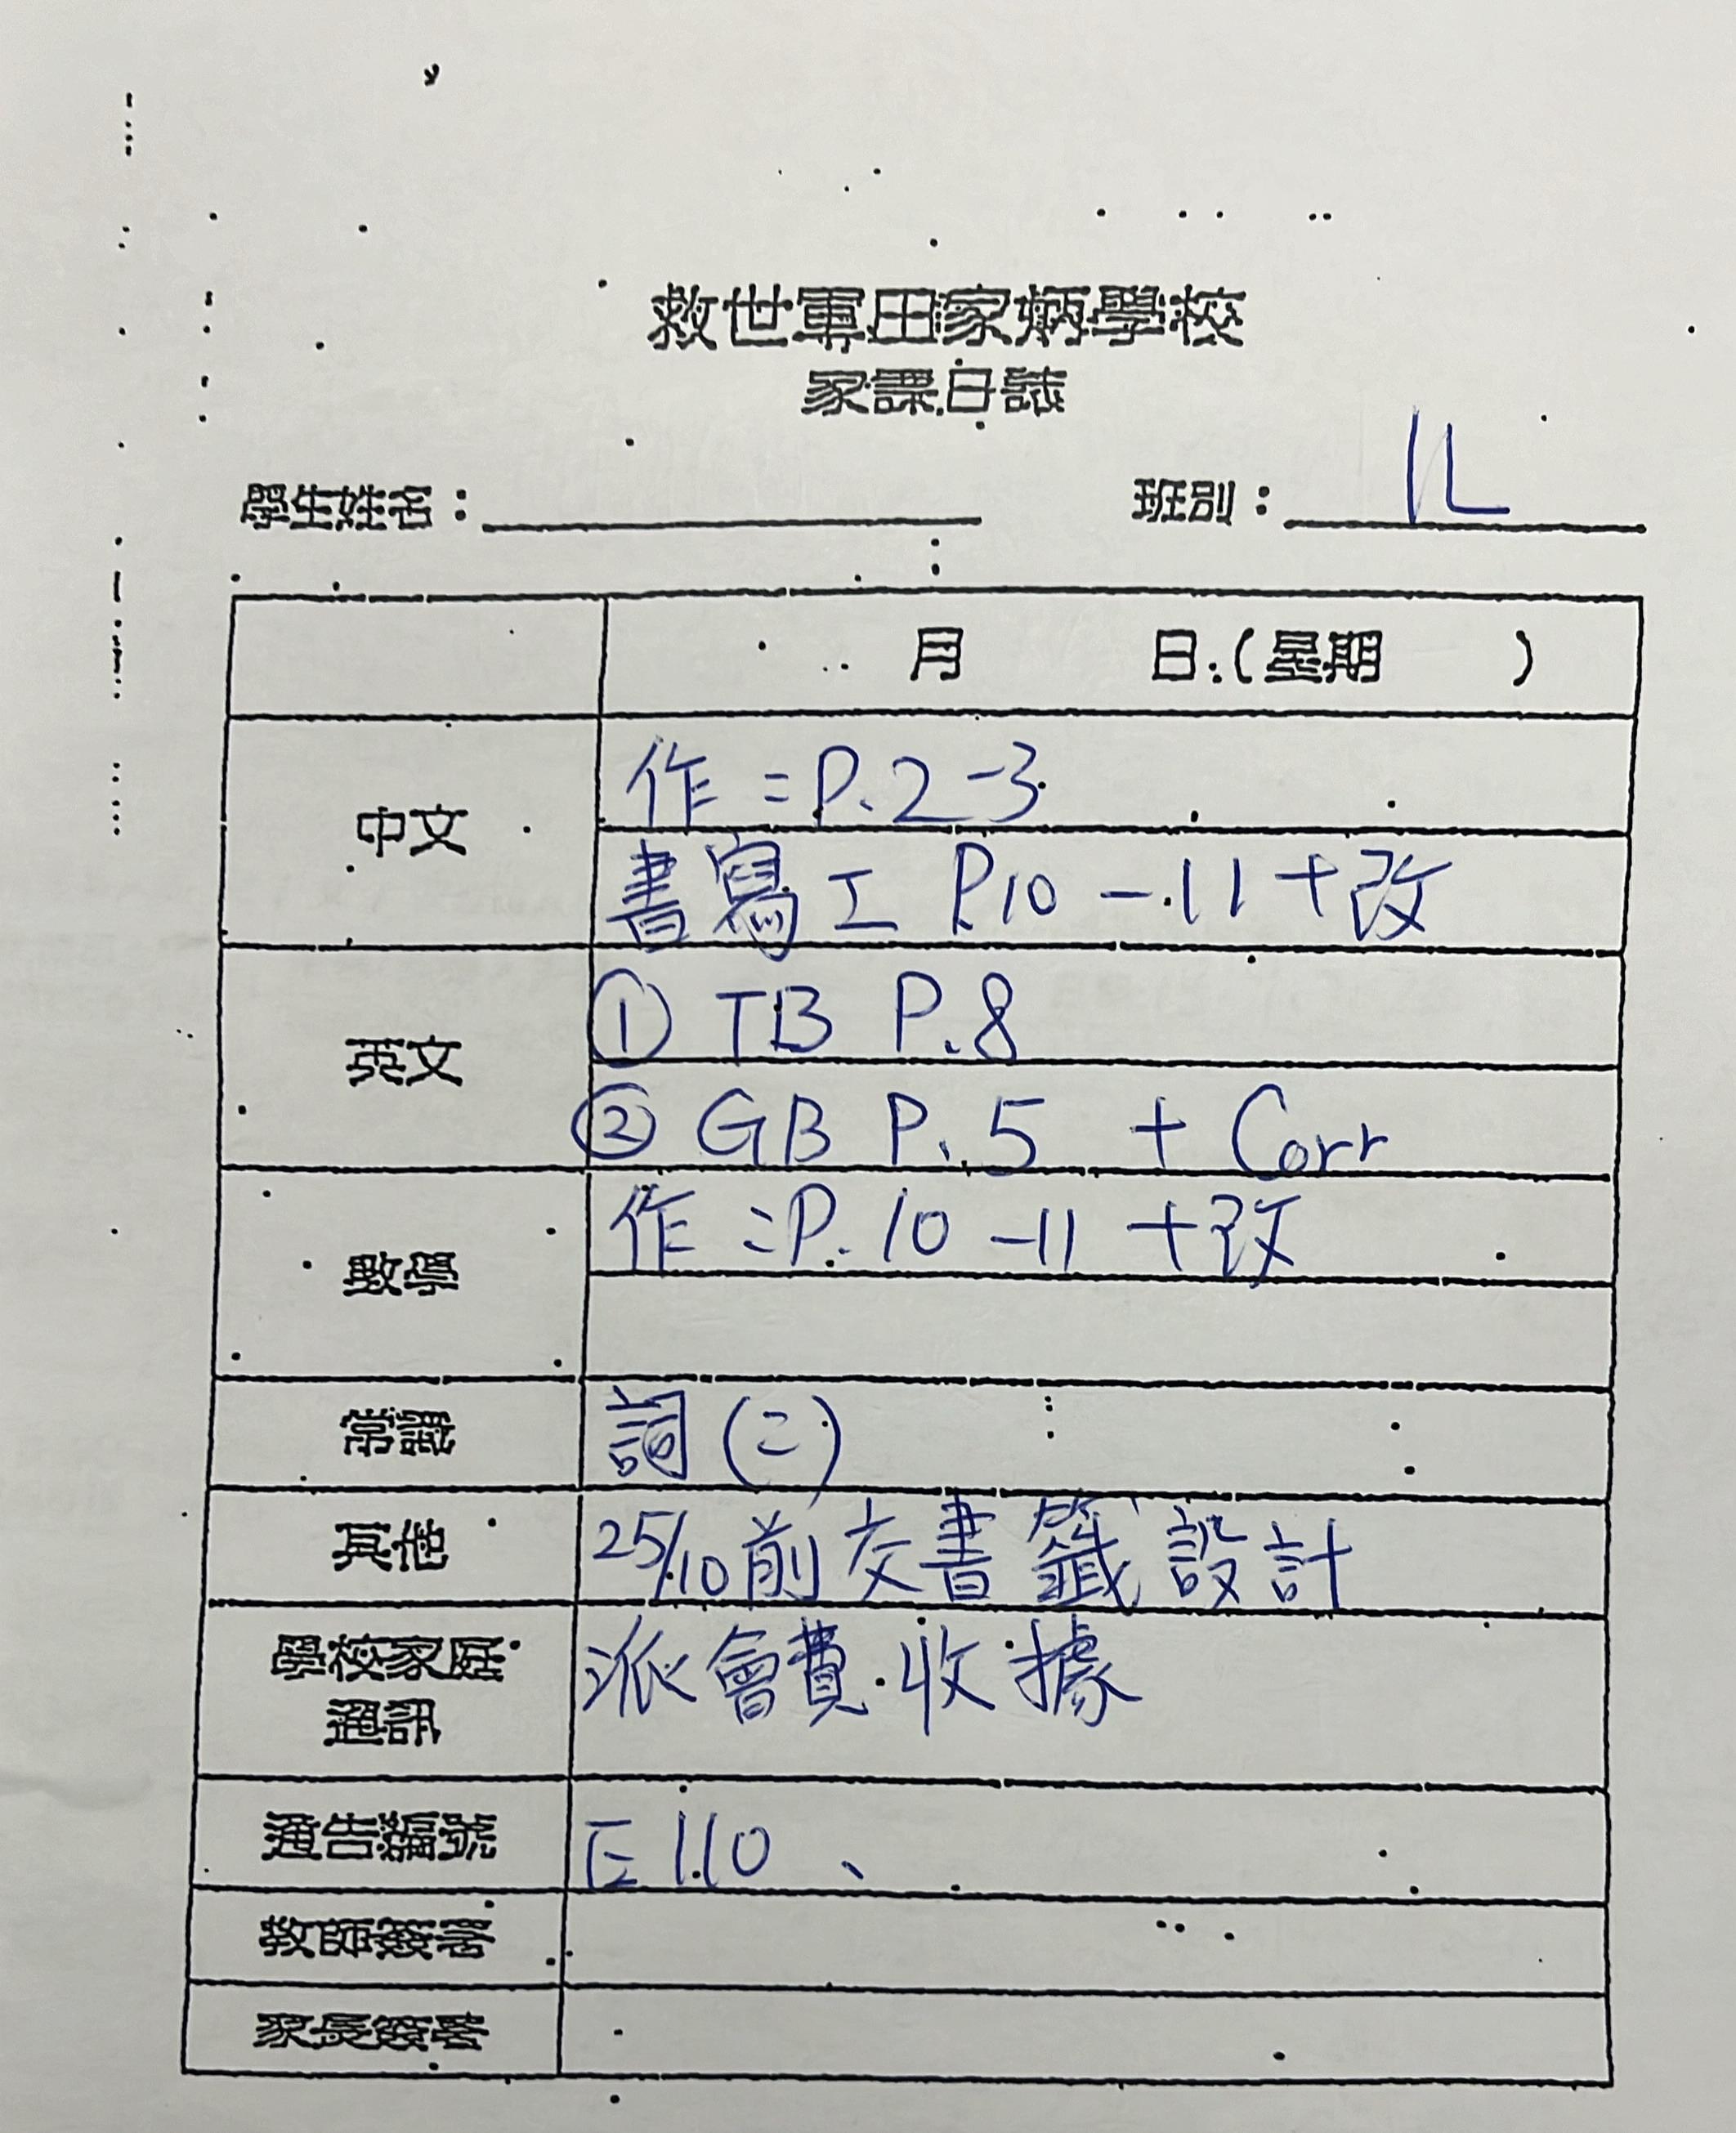 救世軍田家炳學校
家課日誌
學生姓名：
班別： 1L
月 日(星期 )
中文
作二P.2-3
書寫工 P.10-11+改
英文
① TB P.8
② GB P.5 + Corr
數學
作二P.10-11+改
常識
詞(二)
其他
25/10前交書籤設計
學校家庭
通訊
派會費收據
通告編號
E110、
教師簽署
家長簽署